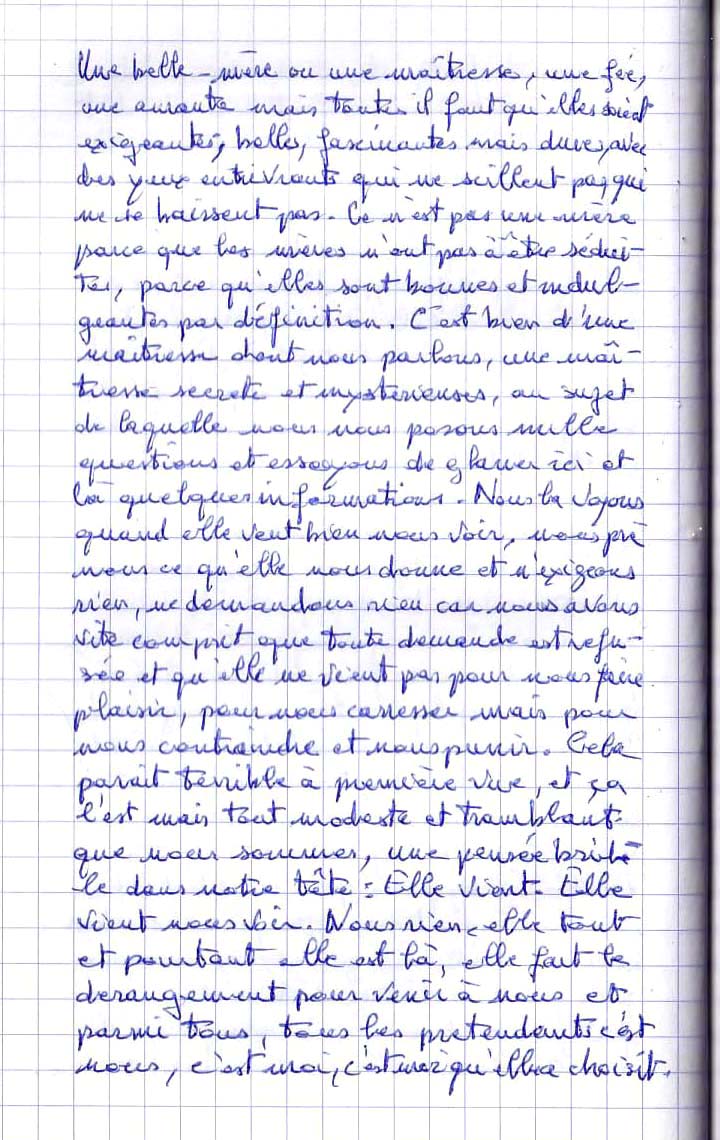 Une belle-mère ou une maîtresse, une fée,
une amante mais toutes il faut qu'elles soient
exigeantes, belles, fascinantes mais dures, avec
des yeux entivrants qui ne scillent pas, qui
ne se baissent pas. Ce n'est pas une mère
parce que les mères n'ont pas à être sédui-
tes, parce qu'elles sont bonnes et indul-
geantes par définition. C'est bien d'une
maîtresse dont nous parlons, une maî-
tresse secrète et mystérieuses, au sujet
de laquelle nous nous posons mille
questions et essayons de glaner ici et
là quelques informations. Nous la voyons
quand elle veut bien nous voir, nous pre
nons ce qu'elle nous donne et n'exigeons
rien, ne demandons rien car nous avons
vite comprit que toute demande est refu-
sée et qu'elle ne vient pas pour nous faire
plaisir, pour nous caresser mais pour
nous contraindre et nous punir. Cela
parait terrible à première vue, et ça
l'est mais tout modeste et tramblant
que nous sommes, une pensée brûle
le dans notre tête : Elle vient. Elle
vient nous voir. Nous rien, elle tout
et pourtant elle est là, elle fait le
derangement pour venir à nous et
parmi tous, tous les pretendants c'est
nous, c'est moi, c'est moi qu'elle a choisit.